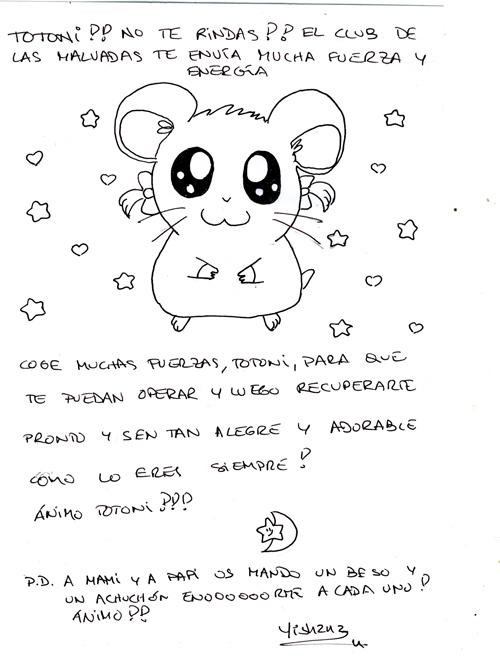 TOTONI!! NO TE RINDAS!! EL CLUB DE
LAS MALVADAS TE ENVÍA MUCHA FUERZA Y
ENERGÍA
COGE MUCHAS FUERZAS, TOTONI, PARA QUE
TE PUEDAN OPERAR Y LUEGO RECUPERARTE
PRONTO Y SEN TAN ALEGRE Y ADORABLE
COMO LO ERES SIEMPRE!
ÁNIMO TOTONI!!!
P.D. A MAMI Y A PAPI OS MANDO UN BESO Y
UN ACHUCHÓN ENOOOOOORME A CADA UNO!
ÁNIMO!!